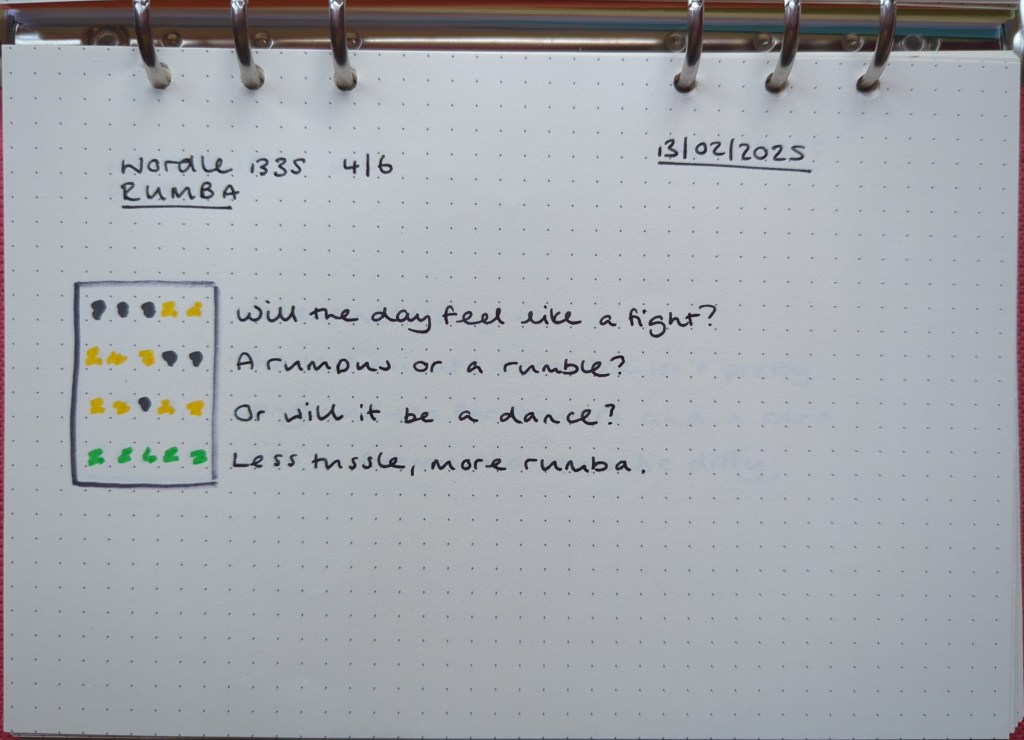 Wordle 1335 4/6
13/02/2025
RUMBA
Will the day feel like a fight?
A rumpus or a rumble?
Or will it be a dance?
Less tussle, more rumba.